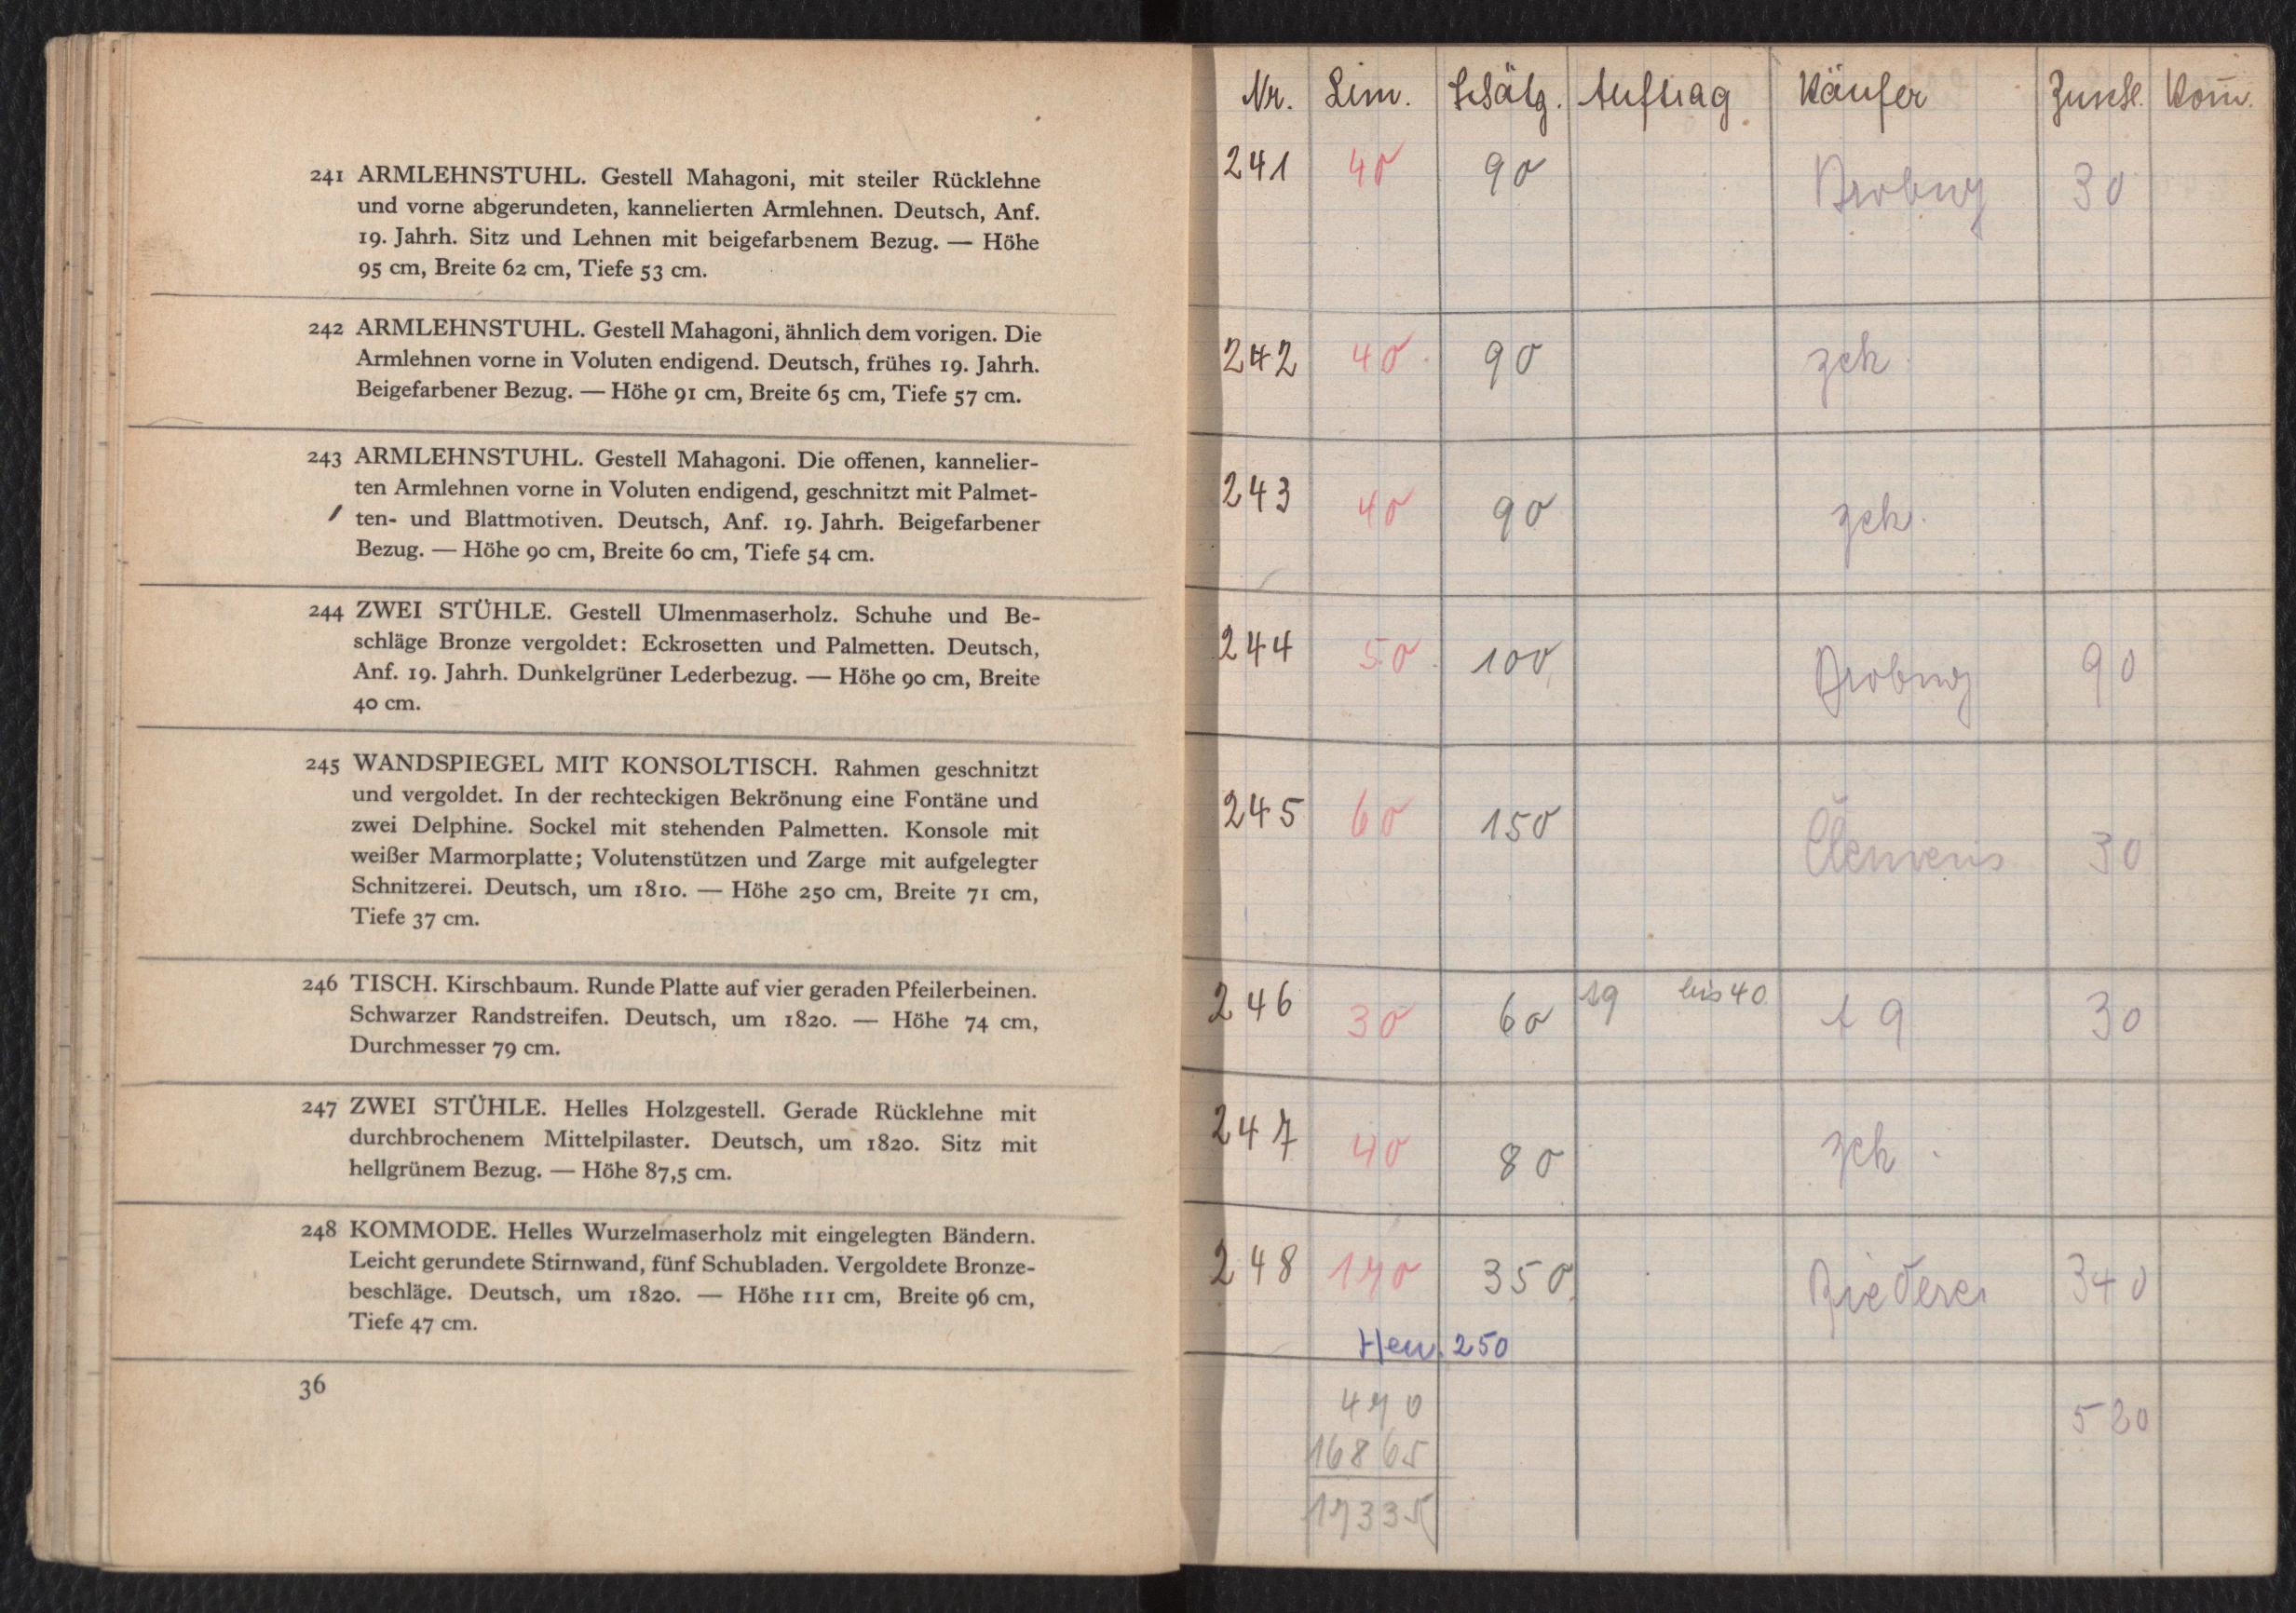 241 ARMLEHNSTUHL. Gestell Mahagoni, mit steiler Rücklehne
und vorne abgerundeten, kannelierten Armlehnen. Deutsch, Anf.
19. Jahrh. Sitz und Lehnen mit beigefarbenem Bezug. — Höhe
95 cm, Breite 62 cm, Tiefe 53 cm.
242 ARMLEHNSTUHL. Gestell Mahagoni, ähnlich dem vorigen. Die
Armlehnen vorne in Voluten endigend. Deutsch, frühes 19. Jahrh.
Beigefarbener Bezug. — Höhe 91 cm, Breite 65 cm, Tiefe 57 cm.
243 ARMLEHNSTUHL. Gestell Mahagoni. Die offenen, kannelier-
ten Armlehnen vorne in Voluten endigend, geschnitzt mit Palmet-
ten- und Blattmotiven. Deutsch, Anf. 19. Jahrh. Beigefarbener
Bezug. — Höhe 90 cm, Breite 60 cm, Tiefe 54 cm.
244 ZWEI STÜHLE. Gestell Ulmenmaserholz. Schuhe und Be-
schläge Bronze vergoldet: Eckrosetten und Palmetten. Deutsch,
Anf. 19. Jahrh. Dunkelgrüner Lederbezug. — Höhe 90 cm, Breite
40 cm.
245 WANDSPIEGEL MIT KONSOLTISCH. Rahmen geschnitzt
und vergoldet. In der rechteckigen Bekrönung eine Fontäne und
zwei Delphine. Sockel mit stehenden Palmetten. Konsole mit
weißer Marmorplatte; Volutenstützen und Zarge mit aufgelegter
Schnitzerei. Deutsch, um 1810. — Höhe 250 cm, Breite 71 cm,
Tiefe 37 cm.
246 TISCH. Kirschbaum. Runde Platte auf vier geraden Pfeilerbeinen.
Schwarzer Randstreifen. Deutsch, um 1820. — Höhe 74 cm,
Durchmesser 79 cm.
247 ZWEI STÜHLE. Helles Holzgestell. Gerade Rücklehne mit
durchbrochenem Mittelpilaster. Deutsch, um 1820. Sitz mit
hellgrünem Bezug. — Höhe 87,5 cm.
248 KOMMODE. Helles Wurzelmaserholz mit eingelegten Bändern.
Leicht gerundete Stirnwand, fünf Schubladen. Vergoldete Bronze-
beschläge. Deutsch, um 1820. — Höhe 111 cm, Breite 96 cm,
Tiefe 47 cm.
36
Nr. Lim. Schätz. Auftrag Käufer Zuschl. Kom̄.
241 40 90 30
242 40 90 zck
243 40 90 zck.
244 50 100 90
245 60 150 Clemens 30
246 30 60 19 bis 40. 30
247 40 80 zck.
248 170 350 Riederer 340
Heu. 250
470 520
16865
17335